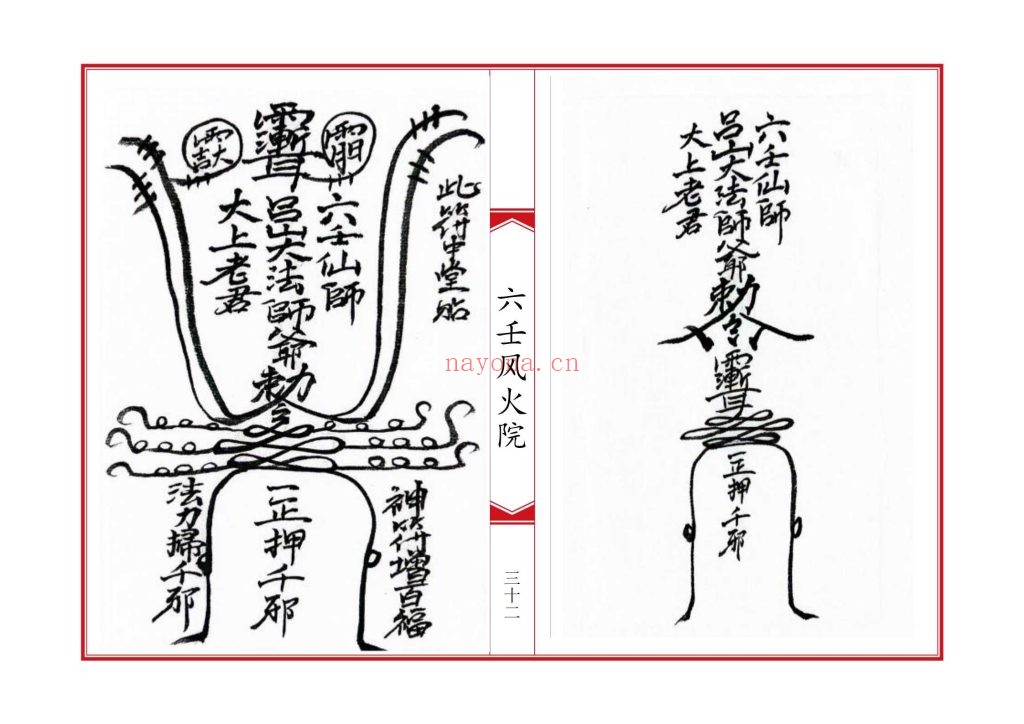 六壬仙師
呂山大法師爺勅令
大上老君
一正押千邪
六壬风火院
三十二
nayona.cn
此符中堂贴
六壬仙師
呂山大法師爺勅令
大上老君
神符增百福
一正押千邪
法力掃千邪